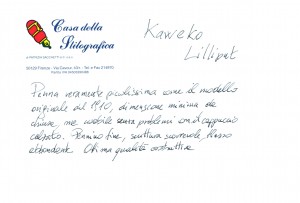 Casa della
Stilografica
Kaweko
Lilliput
50129 Firenze - Via Cavour,
Penna veramente piccolissima come il modello
originale del 1910, dimensione minima da
chiusa, ma usabile senza problemi con il cappuccio
calzato. Pennino fine, scrittura scorrevole, flusso
abbondante. Ottima qualità costruttiva